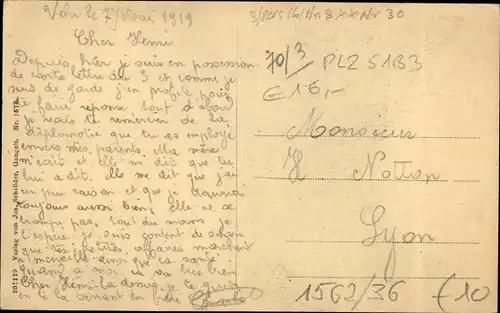 Vén le 7 Mai 1919
Cher Henri
Depuis hier je suis en possession
de carte lettre du 3 et comme je
suis de garde j'en profite pour
te faire réponse. Tout d'abord
je vais te remercier de la
diplomatie que tu as employé
envers mes parents. Ma mère
m'écrit et elle me dit que tu
lui a dit. Elle me dit que j'ai
un peu raison et que je
toujours aussi bien. Elle ne se
trompe pas. Tout du moins je
l'espère. Je suis content de savoir
que tes petites affaires marchent
à merveille ainsi que ta santé.
Quand à moi ça va très bien
Cher Henri la dessus je te quitte
en te la serrant en frère
3/8015
Nr 30
70/3
PLZ 5183
€ 16,-
Monsieur
H Notton
Lyon
1562/36
€10
301179 Verlag von Jos. Schlüter, Gangelt. Nr. 1672